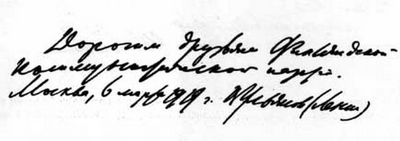 Дорогим друзьям Финляндской
Коммунистической партии.
Москва, 6 марта 1919 г. ВУльянов (Ленин)